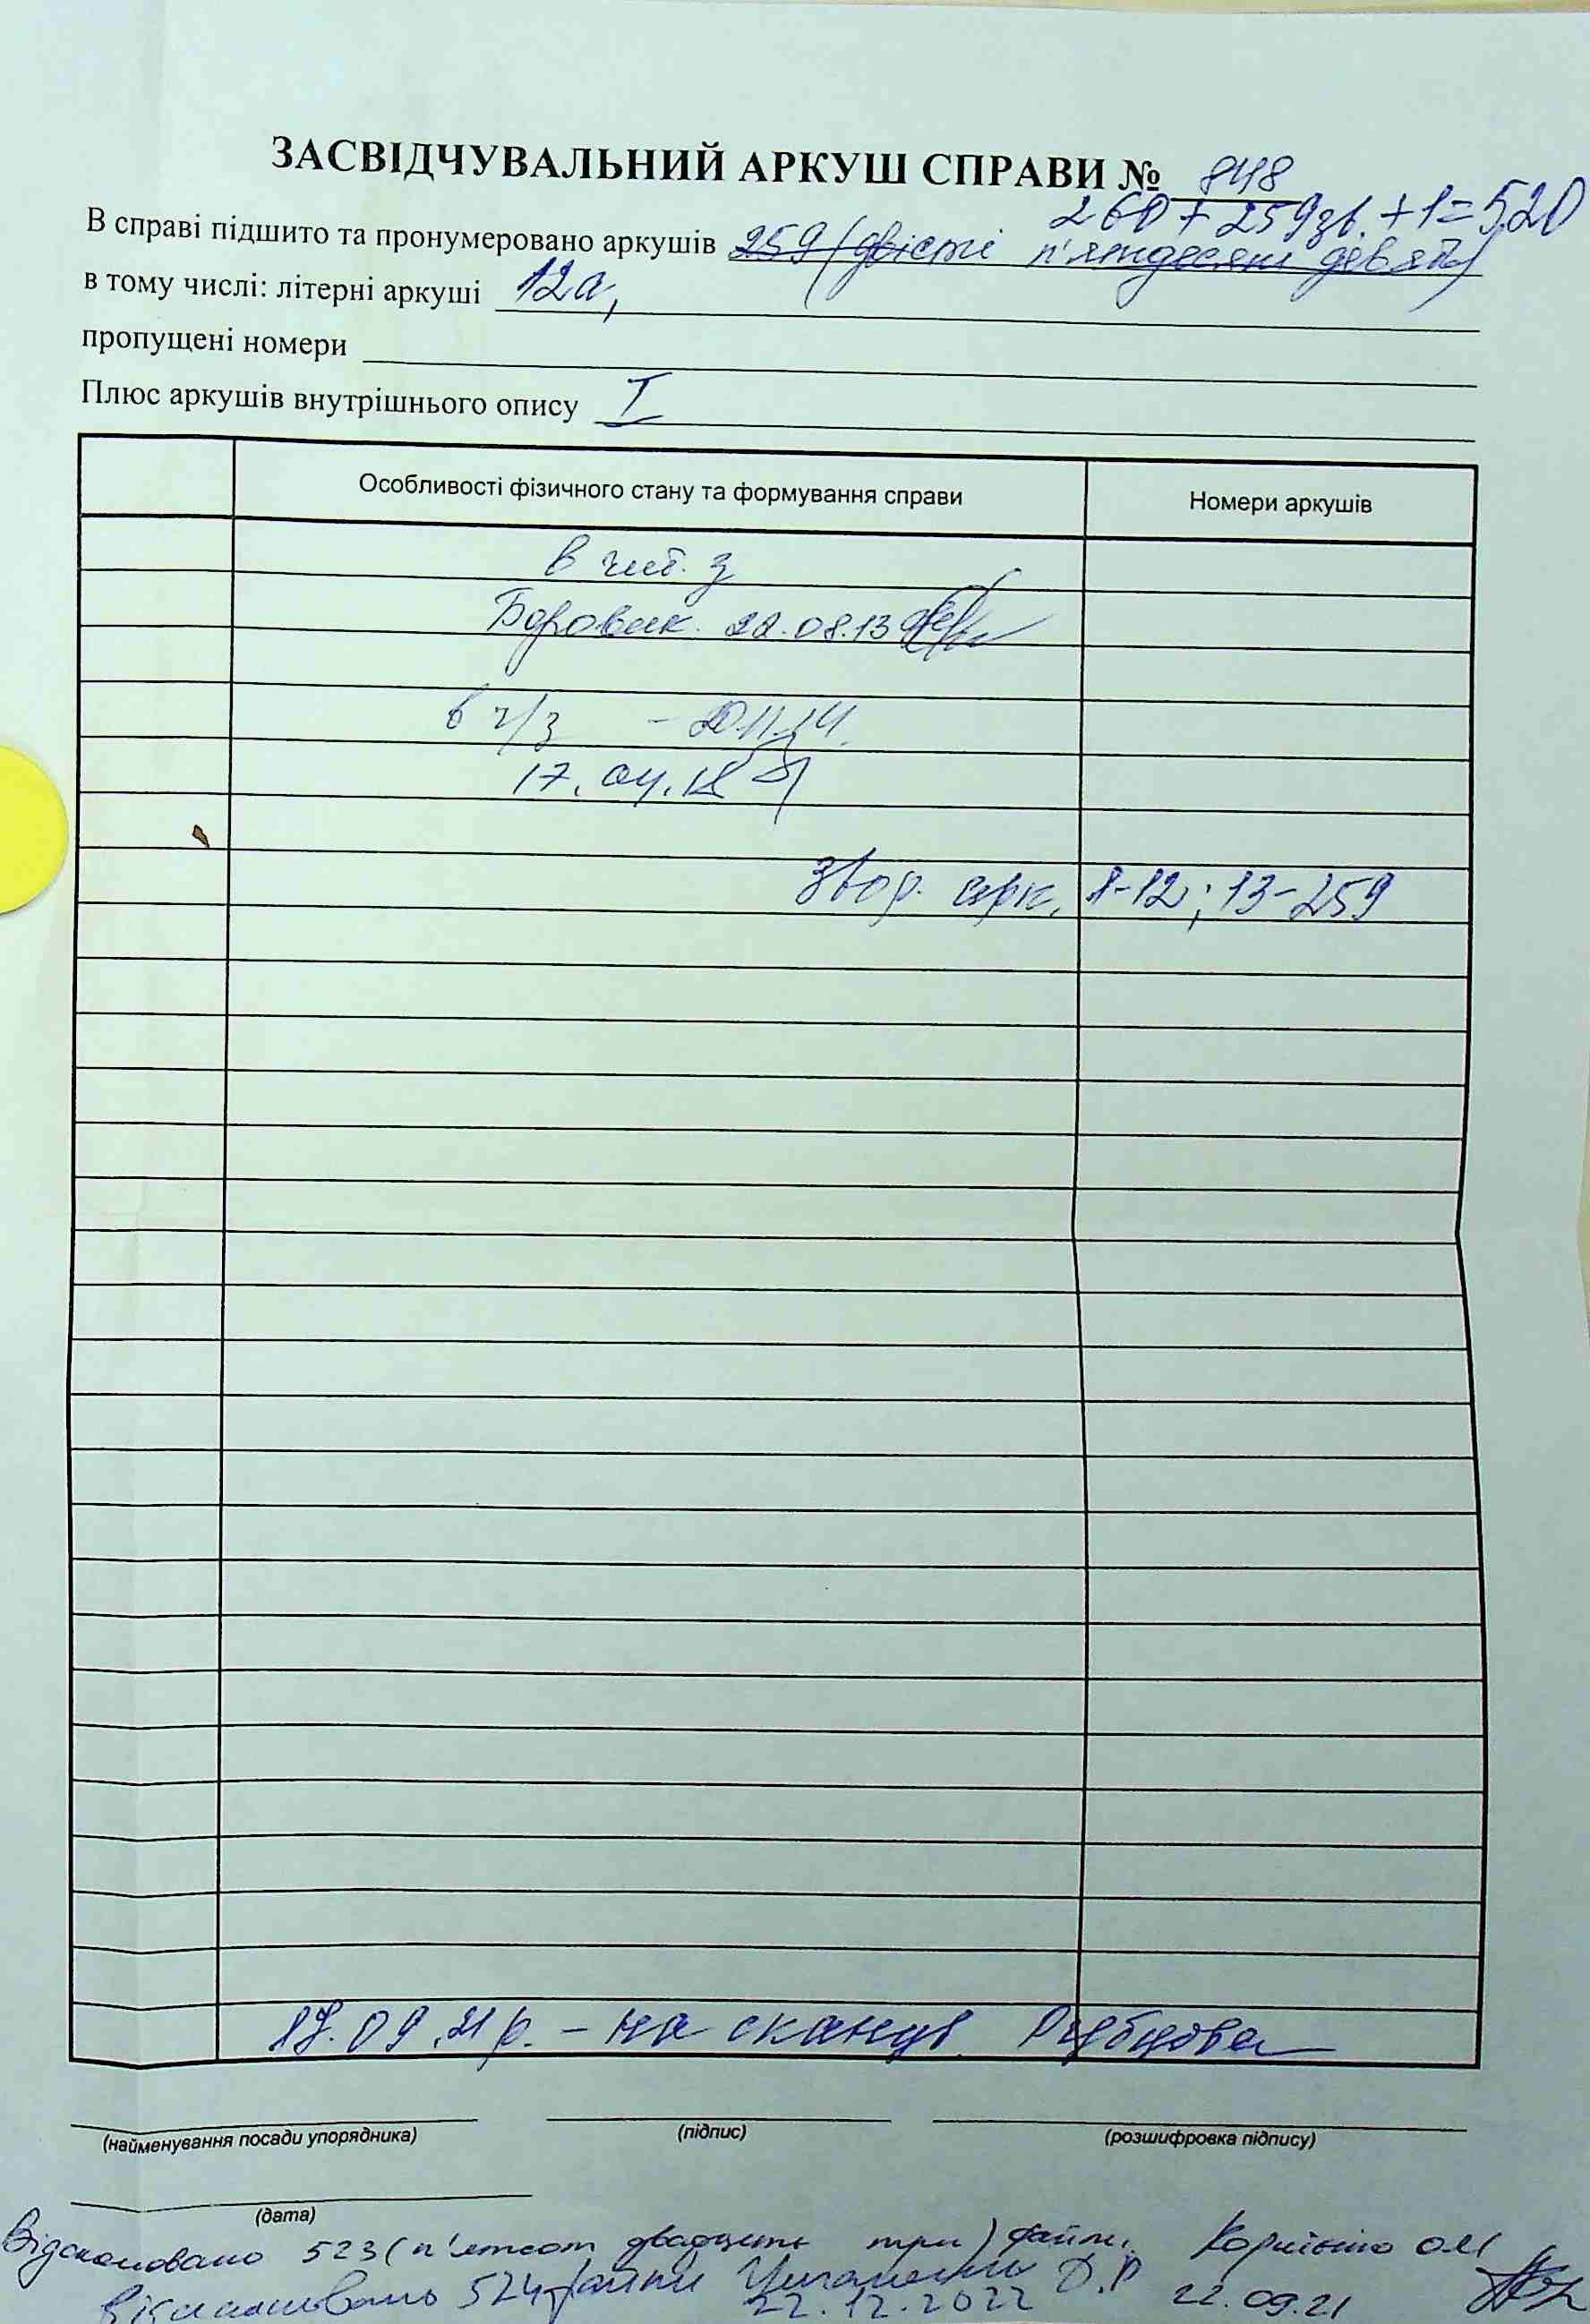 ЗАСВІДЧУВАЛЬНИЙ АРКУШ СПРАВИ № 848
260 + 259 зв. + 1 = 520
В справі підшито та пронумеровано аркушів 259 (двісті п'ятдесят дев'ять)
в тому числі: літерні аркуші 12а,
пропущені номери
Плюс аркушів внутрішнього опису I
Особливості фізичного стану та формування справи Номери аркушів
в чит. з
Боровик. 22.08.13
в ч/з - 20.11.14.
17.04.18
Звор. арк. 1-12; 13-259
17.09.21 р. - на сканув. Рубцова
(найменування посади упорядника) (підпис) (розшифровка підпису)
(дата)
Відскановано 523 (п'ятсот двадцять три) файли 
Відскановано 524 файли Д.Р 22.09.21
22.12.2022